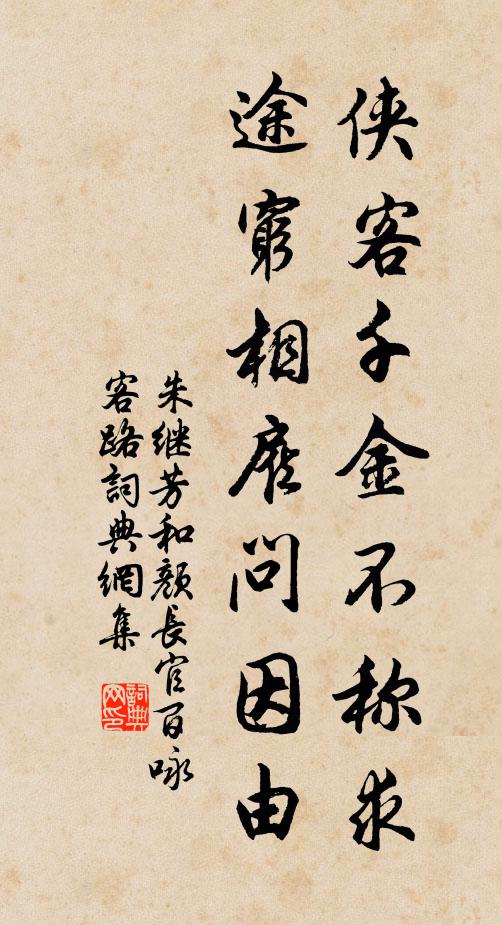 侠客千金不称求
途穷相应问因由
朱继芳和颜长官百咏
客路詞典網集
詞典网印